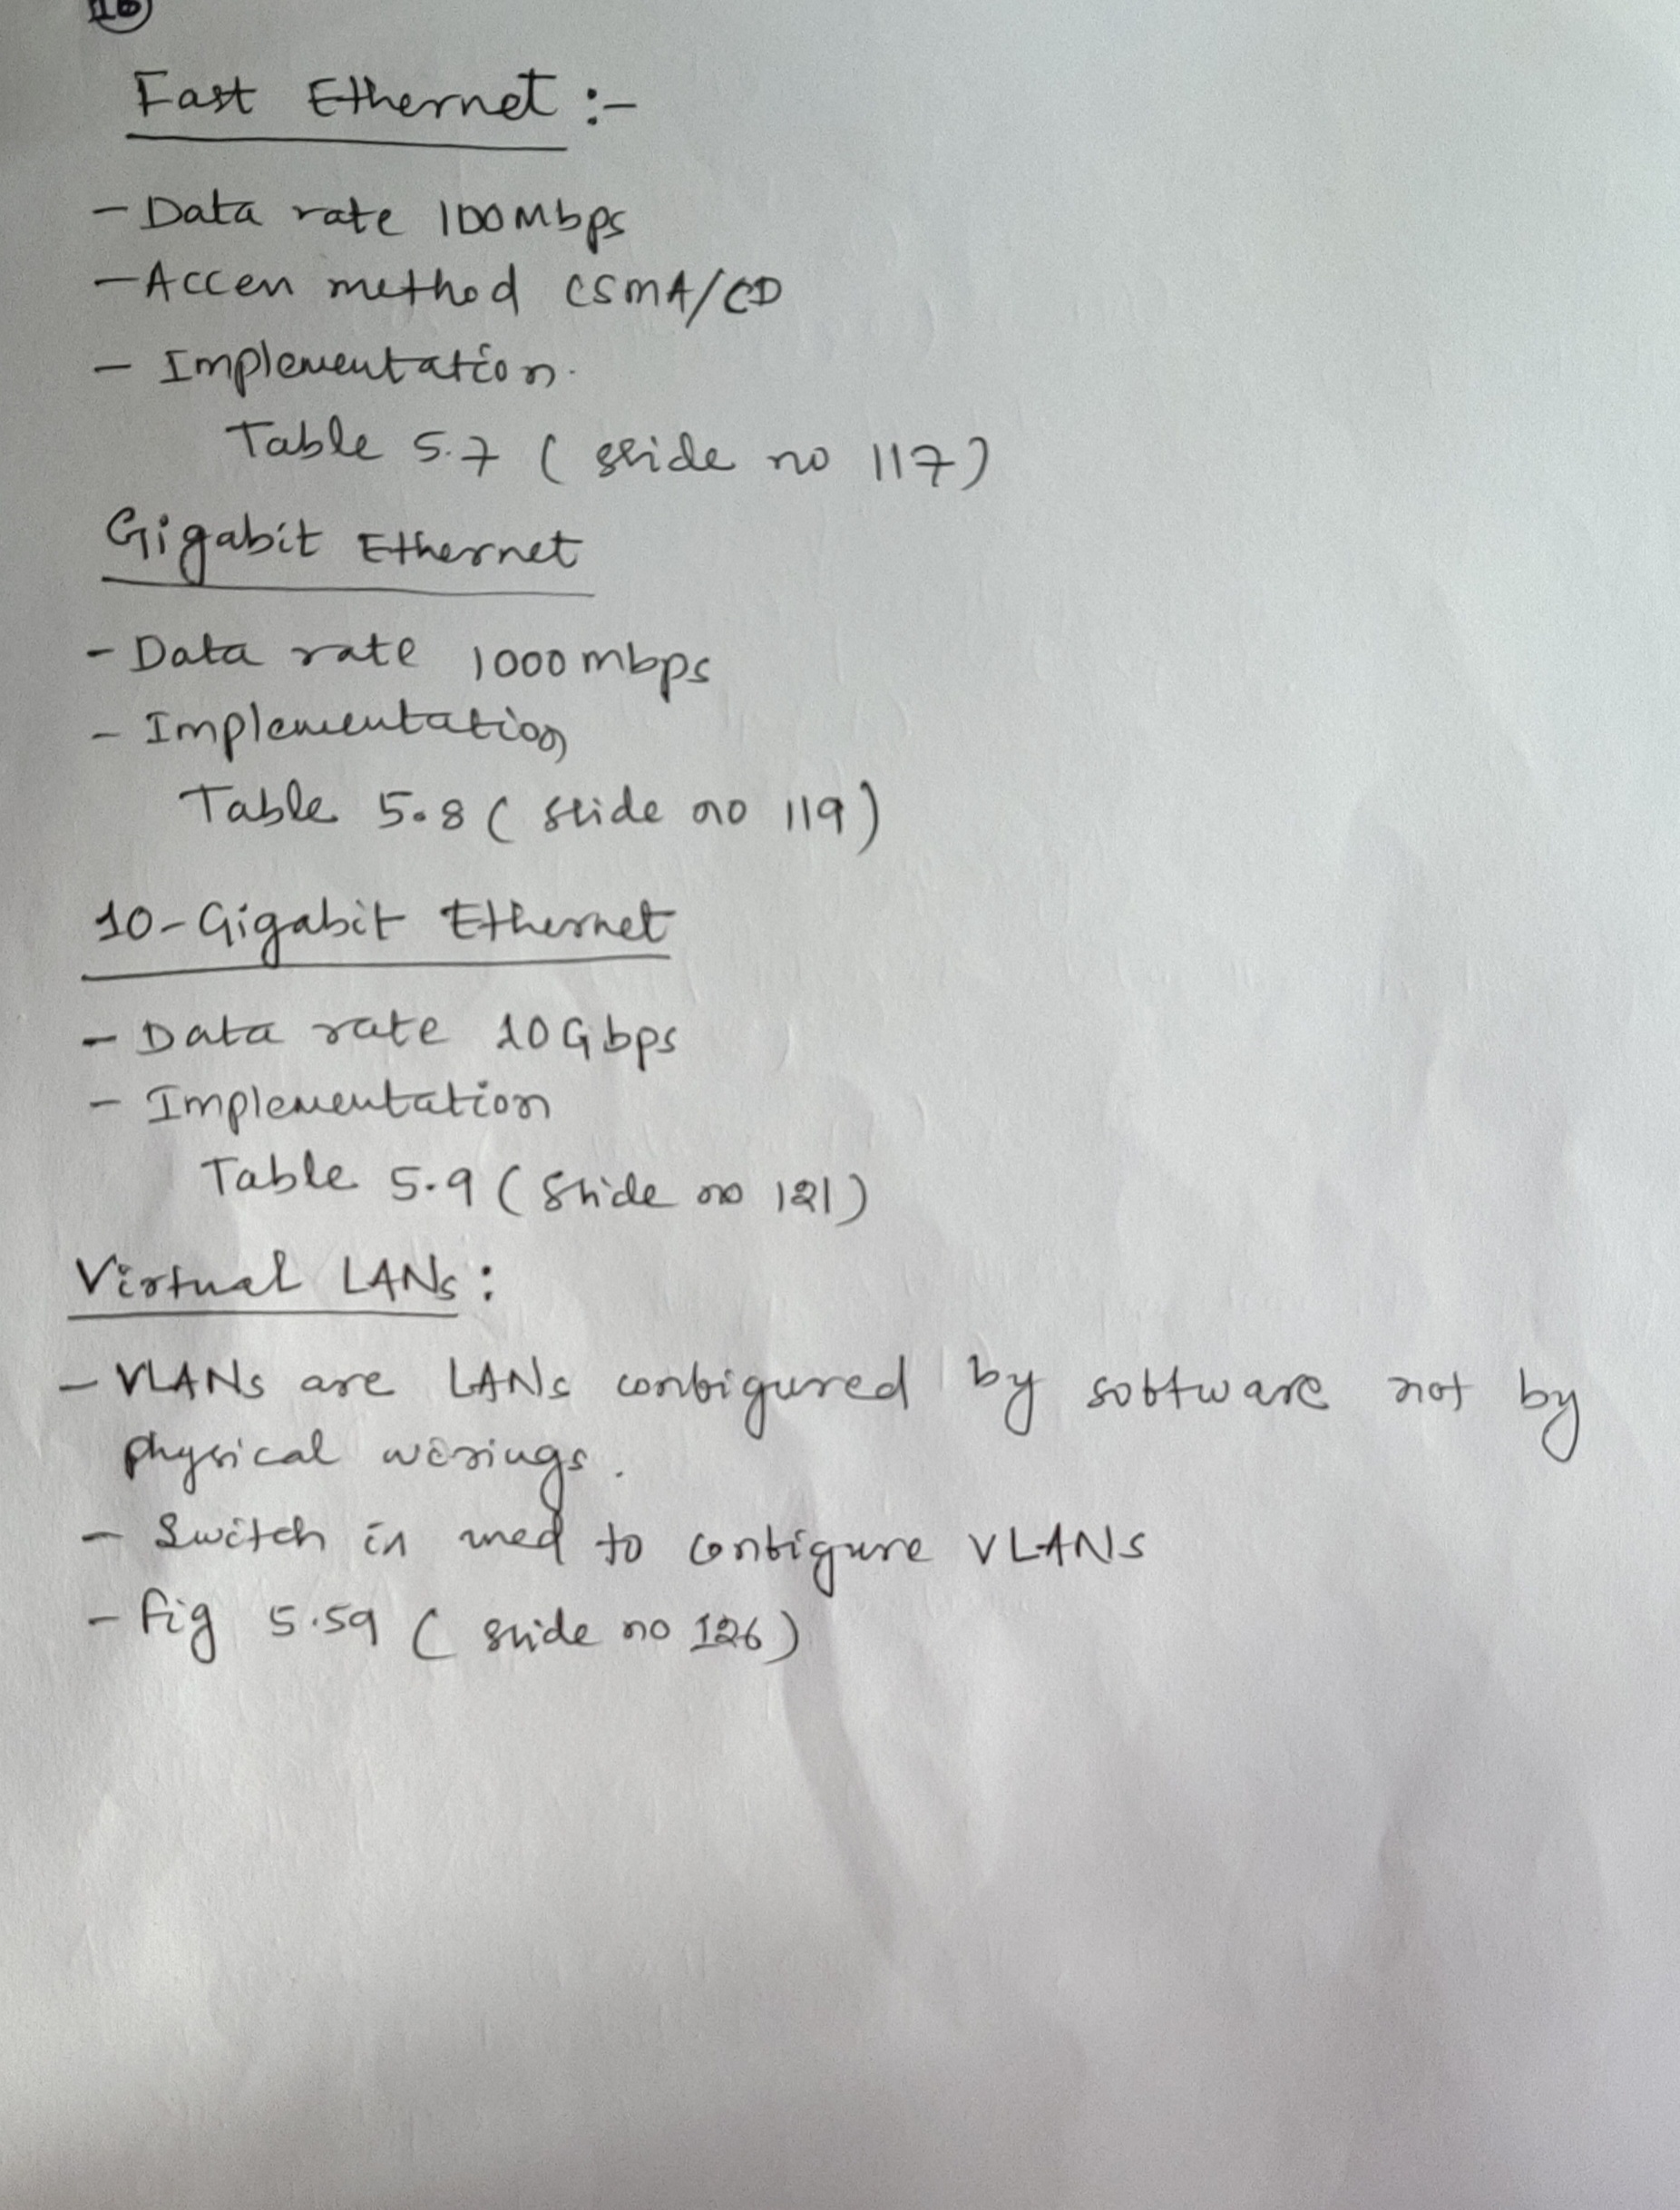 Fast Ethernet :-
- Data rate 100Mbps
- Access method CSMA/CD
- Implementation.
Table 5.7 ( slide no 117)
Gigabit Ethernet
- Data rate 1000 mbps
- Implementation
Table 5.8 ( slide no 119)
10-Gigabit Ethernet
- Data rate 10Gbps
- Implementation
Table 5.9 ( slide no 121)
Virtual LANs :
- VLANs are LANs configured by software not by
physical wirings.
- Switch is used to configure VLANs
- Fig 5.59 ( slide no 126)